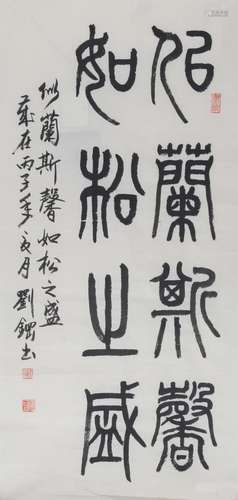 佀蘭斯馨
如松之盛
似蘭斯馨如松之盛
歲在丙子年良月劉鋼书